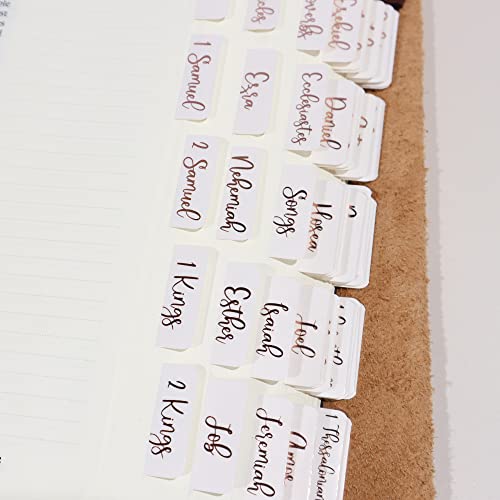 Ezekiel
1 Samuel
Ezra
Ecclesiastes
Daniel
2 Samuel
Nehemiah
Songs
Hosea
1 Kings
Esther
Isaiah
Joel
2 Kings
Job
Jeremiah
Amos
1 Thessalonians